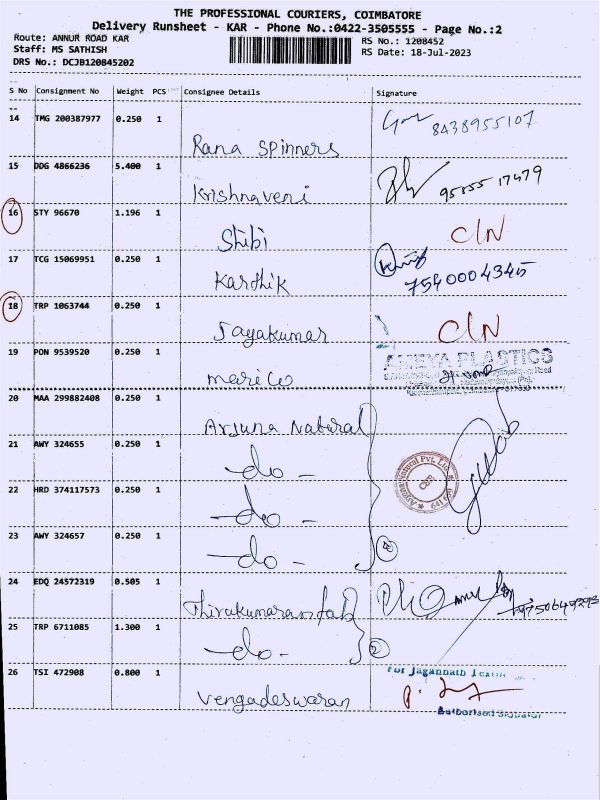 THE PROFESSIONAL COURIERS, COIMBATORE
Delivery Runsheet - KAR - Phone No.:0422-3505555 - Page No.:2
Route: ANNUR ROAD KAR
RS No.: 1208452
Staff: MS SATHISH
RS Date: 18-Jul-2023
DRS No.: DCJB120845202
S No Consignment No Weight PCS Consignee Details Signature
14 TMG 200387977 0.250 1
8438955107
Rana Spinners
15 DDG 4866236 5.400 1
95855 17479
Krishnaveni
16 STY 96670 1.196 1
Shibi C/N
17 TCG 15069951 0.250 1
Karthik 7540004345
18 TRP 1063744 0.250 1
Jayakumar C/N
19 PON 9539520 0.250 1
AMEYA PLASTICS
marico
20 MAA 299882408 0.250 1
Arjuna Natural
21 AWY 324655 0.250 1
-do-
22 HRD 374117573 0.250 1
-do-
23 AWY 324657 0.250 1
-do- 4
24 EDQ 24572319 0.505 1
Thirukumaran fab
25 TRP 6711085 1.300 1
-do- 2
26 TSI 472908 0.800 1
For Jagannath
Vengadeswaran
Authorised Signator